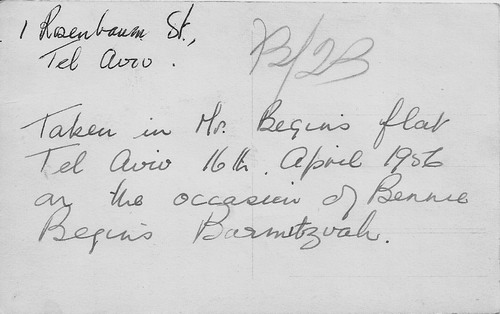 1 Rosenbaum St.,
Tel Aviv.
B/2B
Taken in Mr. Begins flat
Tel Aviv 16th. April 1956
on the occasion of Bennie
Begins Barmitzvah.